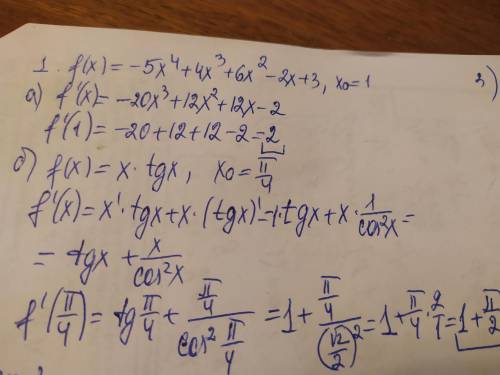 1. f(x) = -5x⁴+4x³+6x²-2x+3, x₀=1
а) f'(x)= -20x³+12x²+12x-2
f'(1)= -20+12+12-2=2
б) f(x)= x·tgx, x₀=π/4
f'(x)=x'·tgx+x·(tgx)'=1·tgx+x·1/cos²x=
= tgx + x/cos²x
f'(π/4)= tg π/4 + (π/4)/(cos² π/4) = 1+ (π/4)/(√2/2)² =1+π/4·2/1=1+π/2